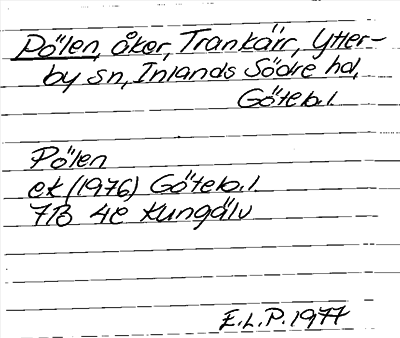 Pölen, åker, Trankärr, Ytter-
by sn, Inlands Södre hd,
Göteb.l.
Pölen
ek (1976) Göteb.l.
7B 4e Kungälv
E.L.P. 1977